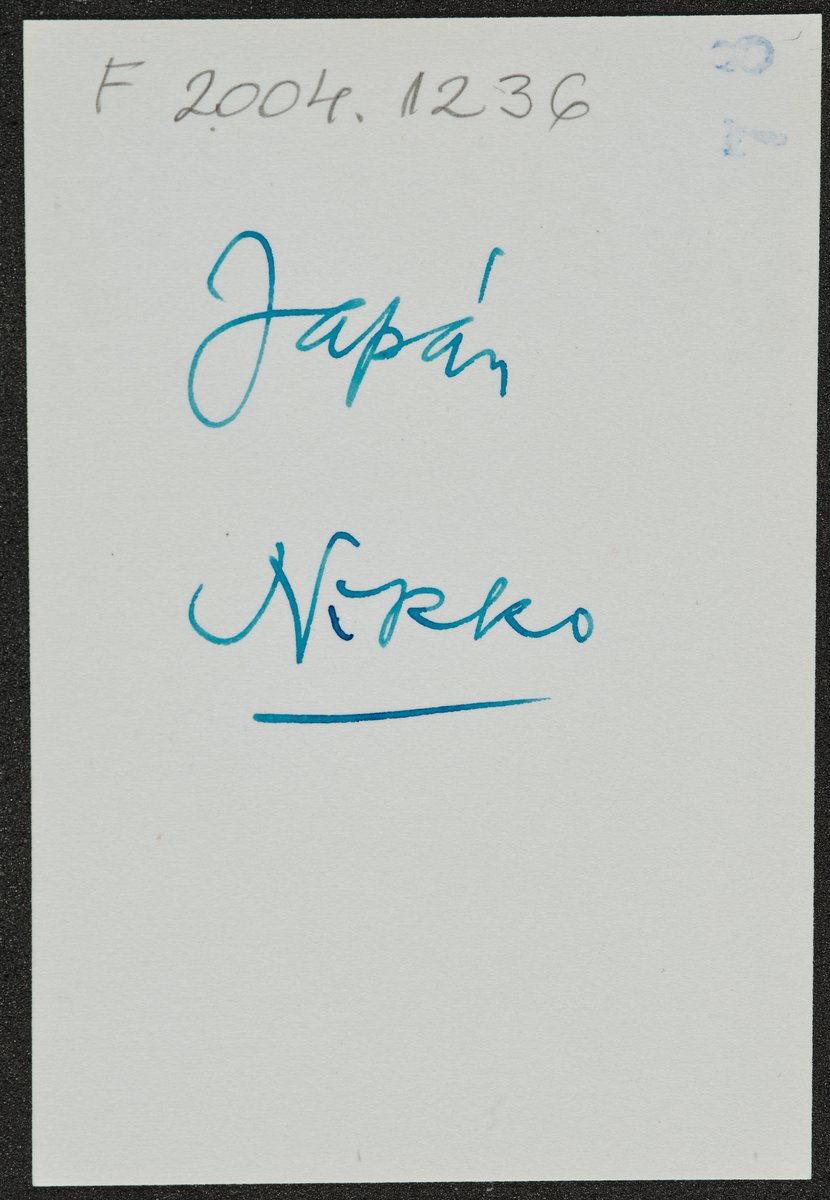 F 2004.1236
Japán
Nikko